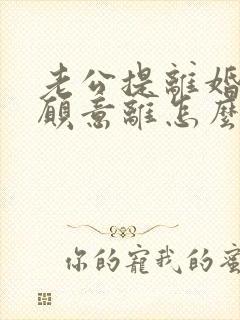 老公提離婚
願意離怎麼
你的寵我的蜜